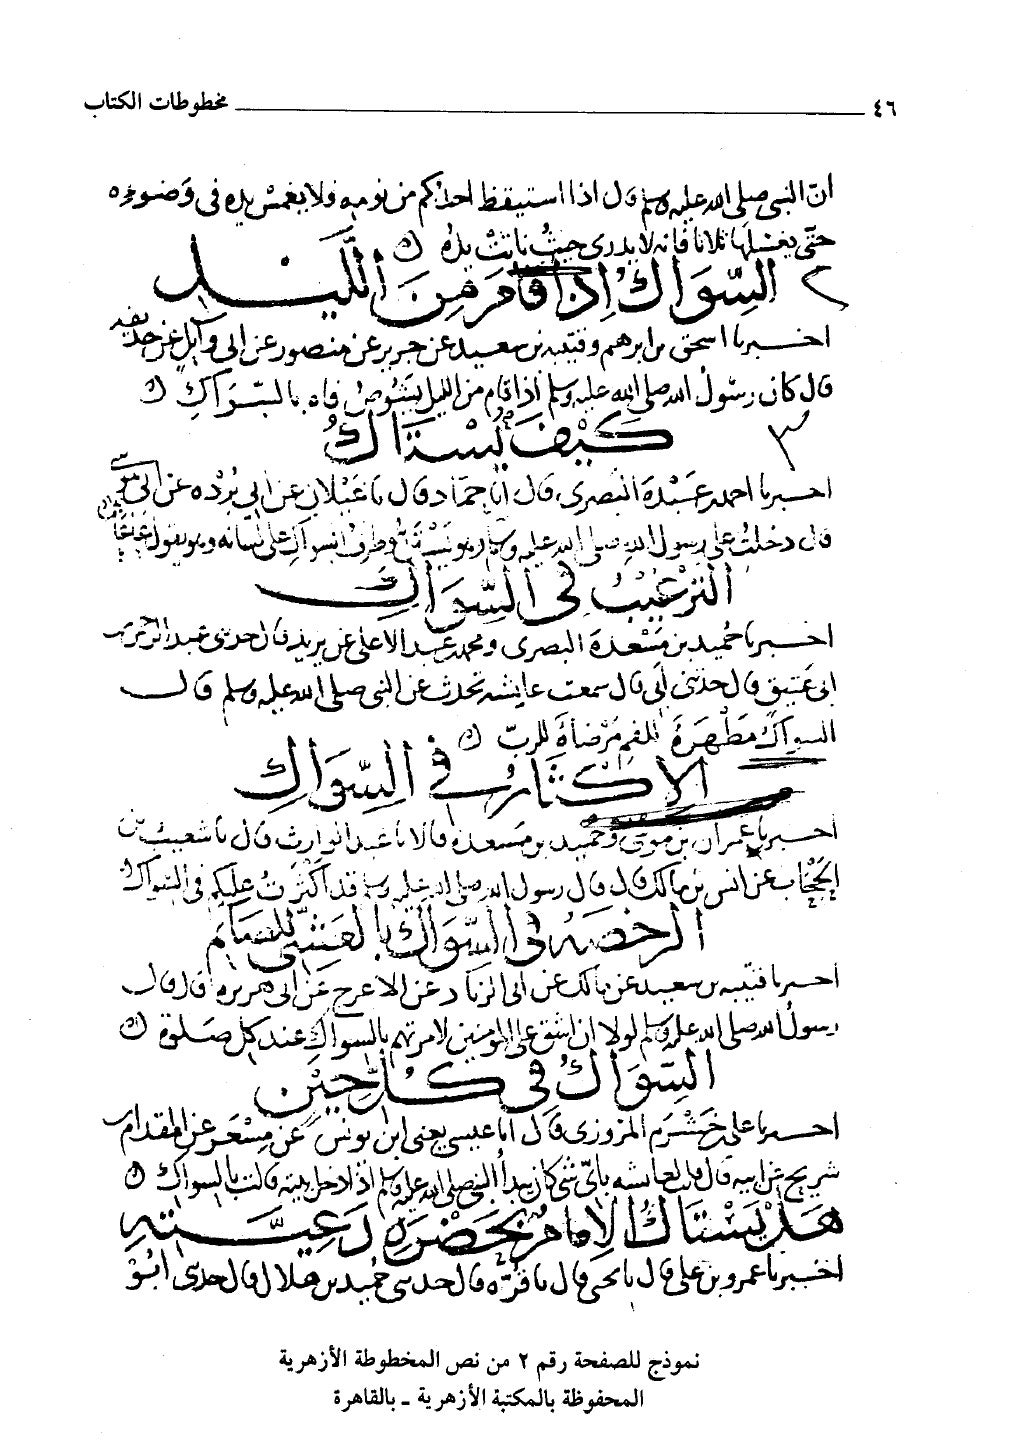 ٤٦ مخطوطات الكتاب
انّ النبي صلى الله عليه وسلم قال اذا استيقظ احدكم من نومه فلا يغمس يده في وضوءه
حتّى يغسلها ثلاثا فانه لا يدري حيث باتت يده
٢ السِّوَاكُ اِذَا قَامَ مِنَ اللَّيْلِ
اخبرنا اسحق بن ابرهيم وقتيبه بن سعيد عن جرير عن منصور عن ابي وآئل عن حذيفه
قال كان رسول الله صلى الله عليه وسلم اذا قام من الليل يشوص فاه بالسّواك
٣ كَيْفَ يَسْتَاكُ
اخبرنا احمد بن عَبْدَة البصرى قال انا حماد قال نا غيلان عن ابي بُرْده عن ابي موسى
قال دخلت على رسول الله صلى الله عليه وسلم وهو يستنّ وطرف السواك على لسانه وهو يقول
الترغيب في السِّوَاك
اخبرنا حُميد بن مَسْعَدة البصرى ومحمد بن عبد الاعلى عن يزيد قال حدثنى عبد الرحمن بن
ابي عَتيق قال حدثنى ابي قال سمعت عايشه تحدث عن النبي صلى الله عليه وسلم قال
السواك مَطْهَرَة للفم مَرْضاةٌ للربّ
الاكثار في السِّوَاكِ
اخبرنا عمران بن موسى وحميد بن مسعدة قالا نا عبد الوارث قال نا شعيب بن
الحَبْحَاب عن انس بن مالك قال قال رسول الله صلى الله عليه وسلم قد اكثرتُ عليكم في السّواك
الرخصه في السِّوَاك بالعَشِىّ للصَائم
اخبرنا قتيبه بن سعيد عن مالك عن ابي الزناد عن الاعرج عن ابي هريره ان
رسول الله صلى الله عليه وسلم قال لولا ان اشق على المومنين لامرتهم بالسواك عند كل صَلوة
السِّوَاكُ فِي كُلِّ حِيْن
اخبرنا علي بن خَشْرَم المروزى قال انا عيسى يعني ابن يونس عن مِسْعَر عن المقدام بن
شريح عن ابيه قال قلت لعايشه باىّ شئ كان يبدأ النبي صلى الله عليه وسلم اذا دخل بيته قالت بالسواك
هَلْ يَسْتَاكُ الاِمَامُ بحَضْرَةِ رَعِيَّتِه
اخبرنا عمرو بن علي قال نا يحيى قال نا قُرّه قال حدثنى حُميد بن هلال قال حدثنى ابُو
نموذج للصفحة رقم ٢ من نص المخطوطة الأزهرية
المحفوظة بالمكتبة الأزهرية ـ بالقاهرة